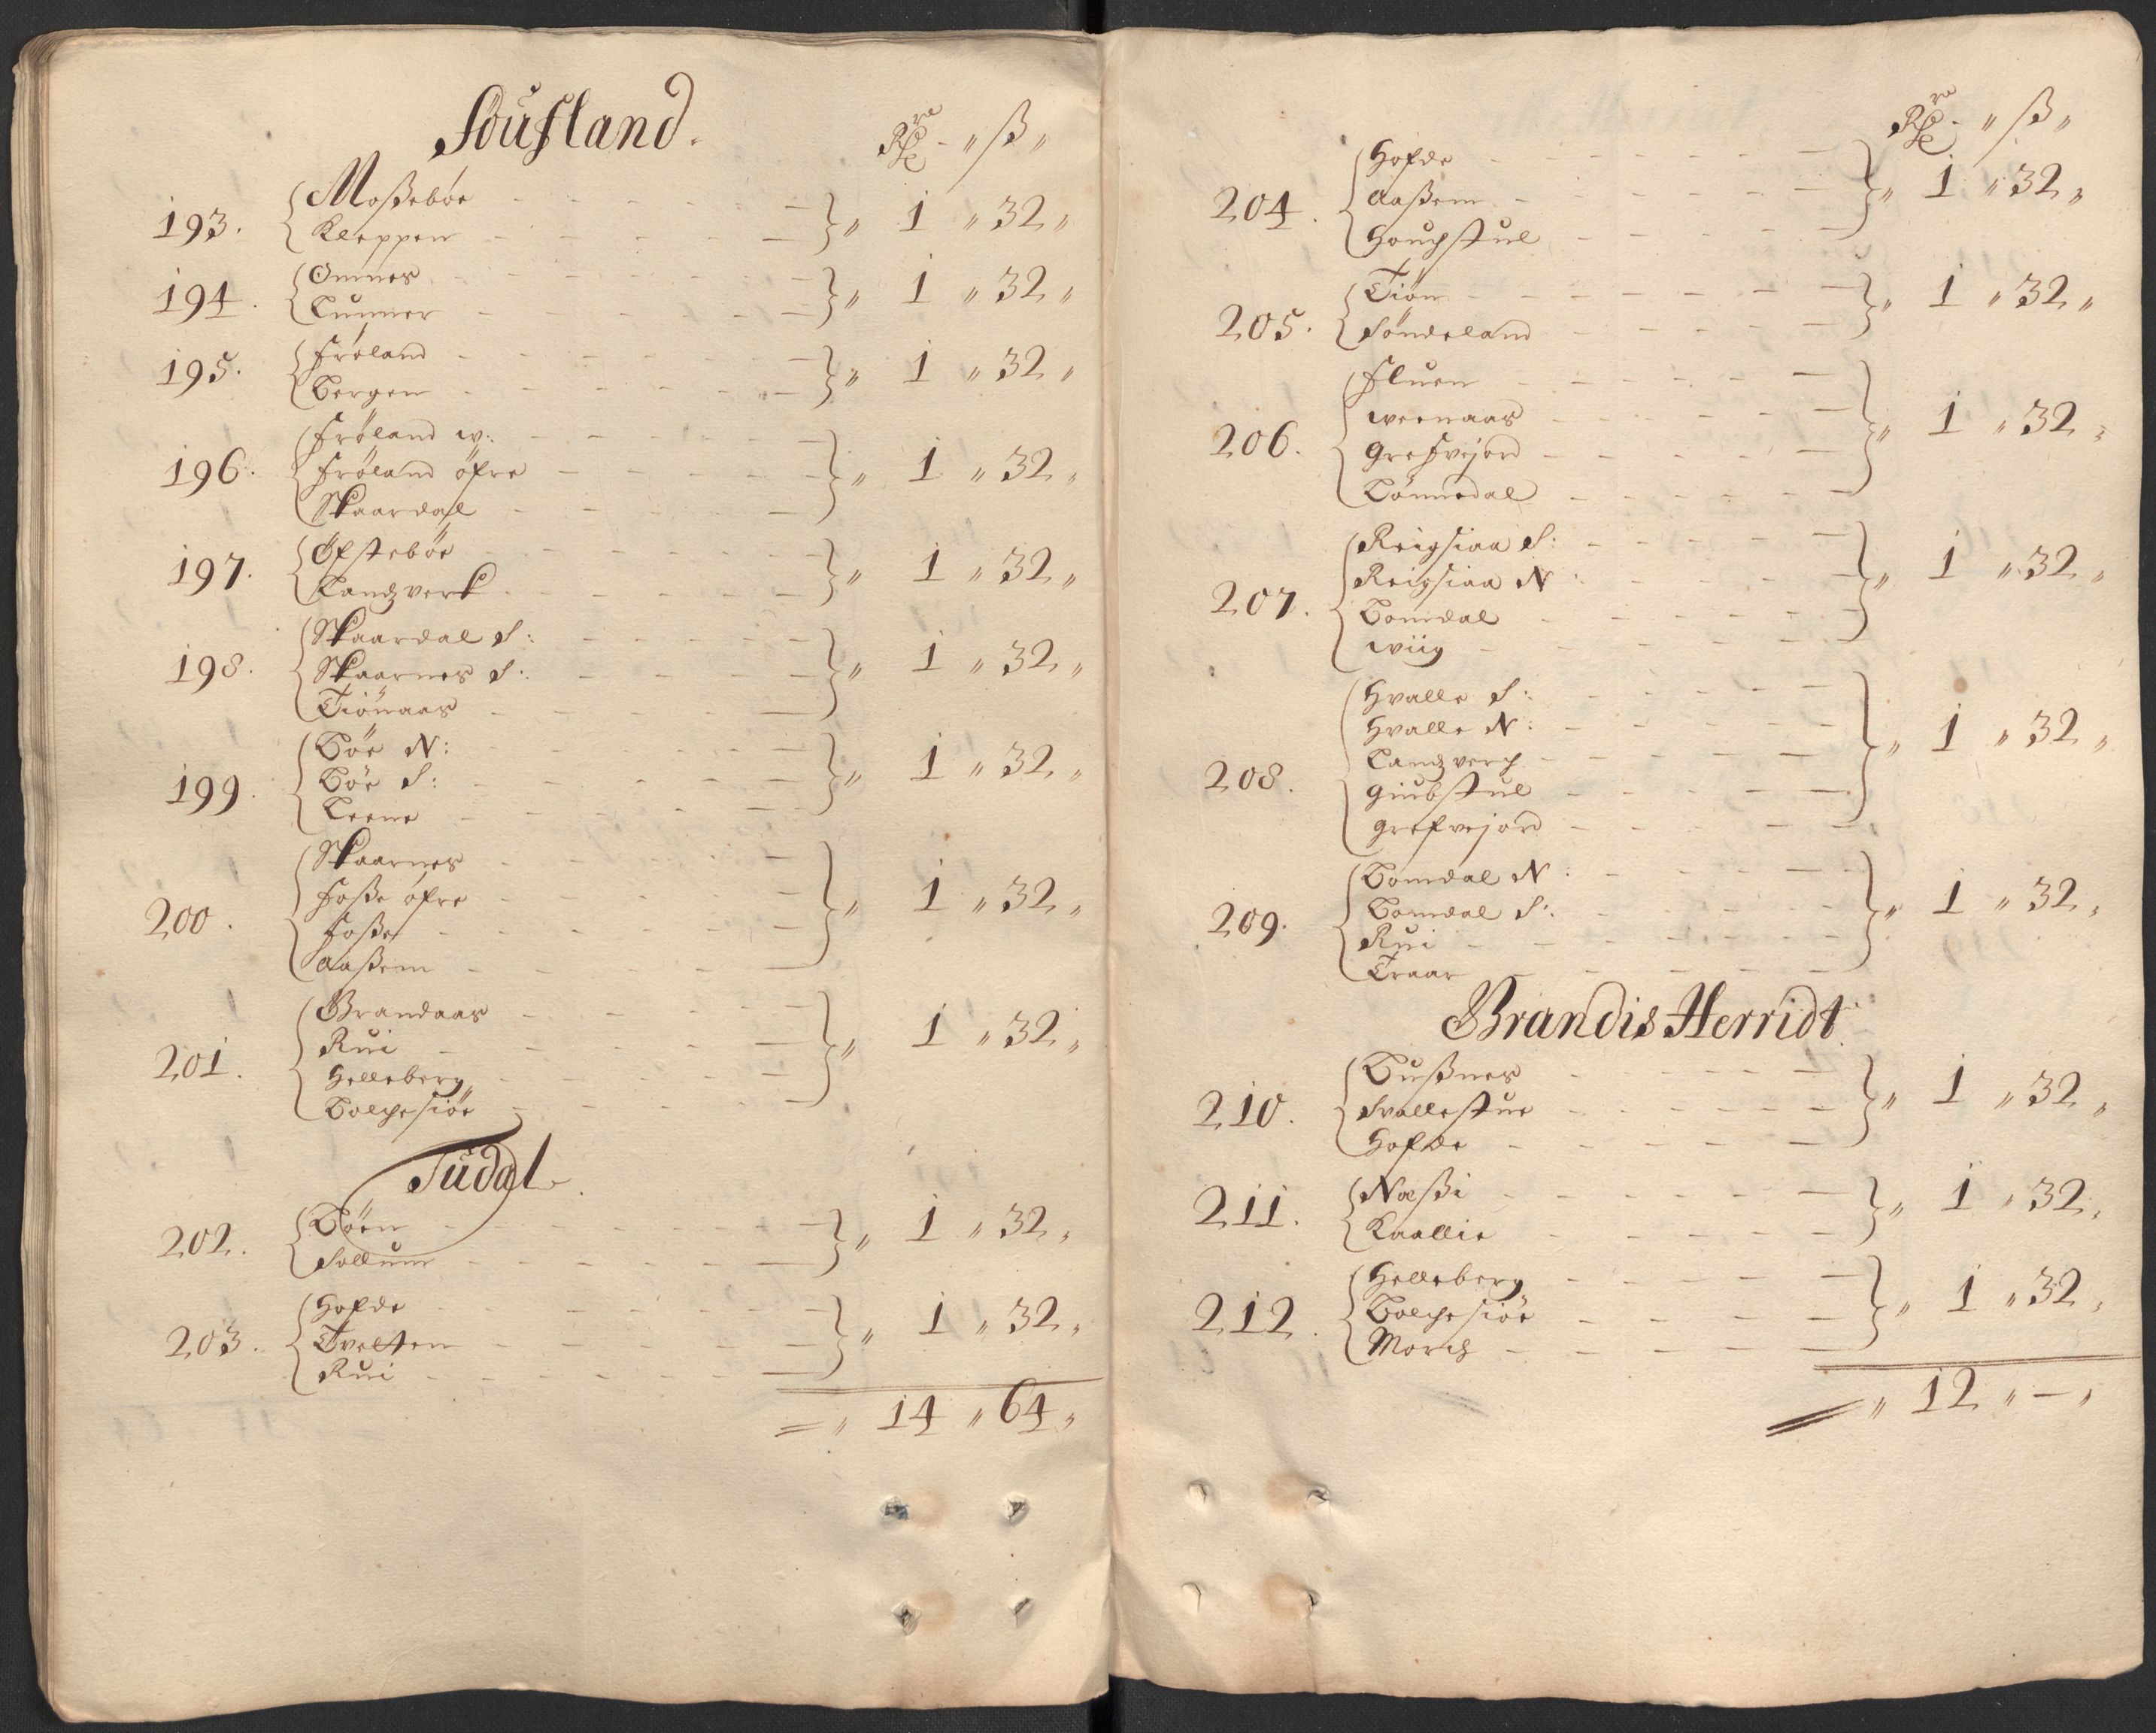 Söufland.
Rdr - „ ß „
193. Moßebøe
Kleppen „ 1 „ 32 „
194. Omnes
Lunner „ 1 „ 32 „
195. Fröland
Bergen „ 1 „ 32 „
196. Fröland w:
Fröland öfre
Skaardal „ 1 „ 32 „
197. Öfstebøe
Landzverk „ 1 „ 32 „
198. Skaardal S:
Skaarnes S:
Tiönaas „ 1 „ 32 „
199. Bøe N:
Bøe S:
Leene „ 1 „ 32 „
200. Skaarnes
Foße öfre
Foße
Aaßem „ 1 „ 32 „
201. Brandaas
Rui
Helleberg
Bolchesiøe „ 1 „ 32 „
Tudal
202. Bøen
Sollum „ 1 „ 32 „
203. Hofde
Tvelten
Rui „ 1 „ 32 „
= „ 14 „ 64 „
Rdr - „ ß „
204. Hofde
Aaßem
Houchstul „ 1 „ 32 „
205. Tiön
Söndeland „ 1 „ 32 „
206. Fluen
weenaas
Grefvejord
Lönnedal „ 1 „ 32 „
207. Reigsiaa S:
Reigsiaa N:
Bomdal
wiig „ 1 „ 32 „
208. Hvalle S:
Hvalle N:
Landzverch
Giubstul
Grefvejord „ 1 „ 32 „
209. Bomdal N:
Bomdal S:
Rui
Traar „ 1 „ 32 „
Brandis Herridt
210. Bußnes
Svallestue
Hofde „ 1 „ 32 „
211. Naßi
Kaallie „ 1 „ 32 „
212. Helleberg
Bolchesiøe
Morch „ 1 „ 32 „
= „ 12 „ - „